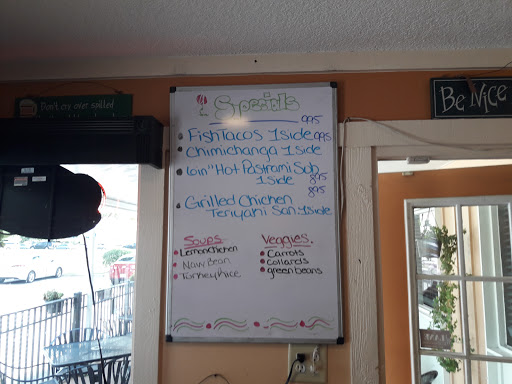 Don't cry over spilled
Be Nice
Specials
995
Fish Tacos 1 side 995
Chimichanga 1 side
10in "Hot Pastrami Sub
1 side 895
895
Grilled Chicken
Teriyaki San. 1 side
Soups.
Lemon Chicken
Navy Bean
Turkey Rice
Veggies.
Carrots
collards
green beans